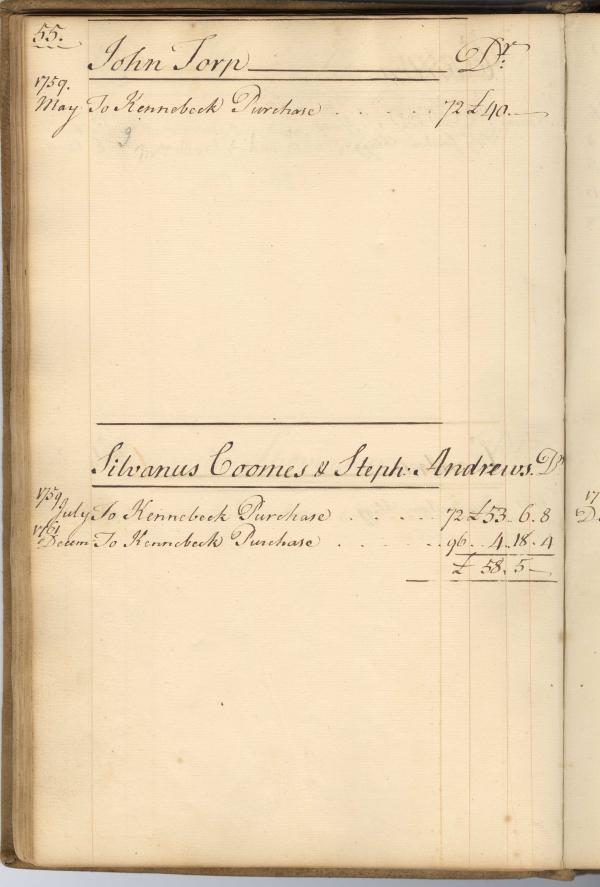 55.
John Torp Dr.
1759.
May To Kennebeck Purchase . . . . . . 72 £40.—
9
Silvanus Coomes & Steph: Andrews. Dr
1759
July To Kennebeck Purchase . . . . . 72 £53.. 6. 8
1761
Decem To Kennebeck Purchase . . . . . . 96. 4.. 18. 4
£ 58. 5—
17
D